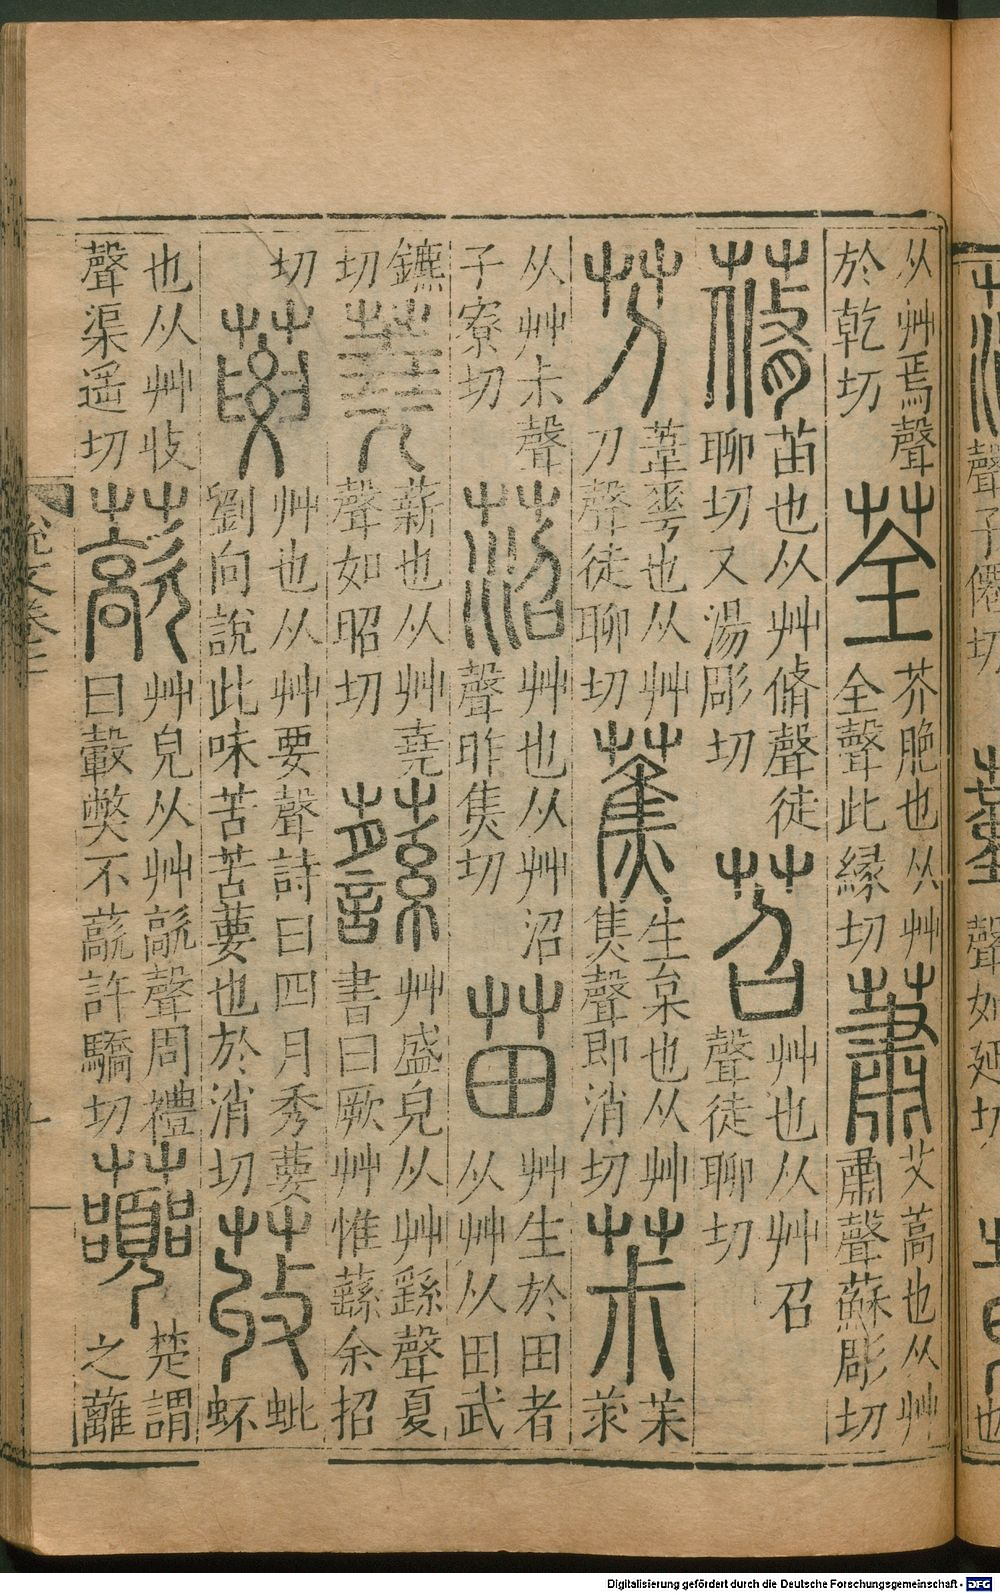 从艸焉聲
於乾切
荃
芥脃也从艸
全聲此緣切
蕭
艾蒿也从艸
肅聲蘇彫切
蓨
苗也从艸脩聲徒
聊切又湯彫切
苕
艸也从艸召
聲徒聊切
芀
葦華也从艸
刀聲徒聊切
蕉
生枲也从艸
焦聲即消切
茮
茮莍
从艸尗聲
子寮切
菬
艸也从艸沼
聲昨焦切
苗
艸生於田者
从艸从田武
鑣切
蕘
薪也从艸堯
聲如昭切
蘨
艸盛皃从艸繇聲夏
書曰厥艸惟蘨余招
切
葽
艸也从艸要聲詩曰四月秀葽
劉向說此味苦苦葽也於消切
荍
蚍衃
也从艸收
聲渠遥切
藃
艸皃从艸歊聲周禮
曰轂獘不藃許驕切
楚謂
之蘺
說文卷
聲子僊切
聲如延切
也
Digitalisierung gefördert durch die Deutsche Forschungsgemeinschaft - DFG